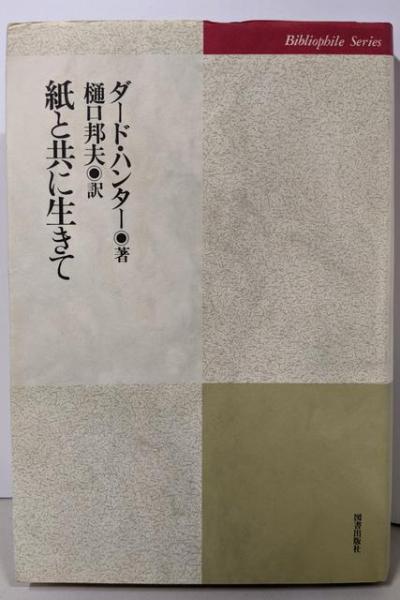 Bibliophile Series
ダード・ハンター◉著
樋口邦夫◉訳
紙と共に生きて
図書出版社